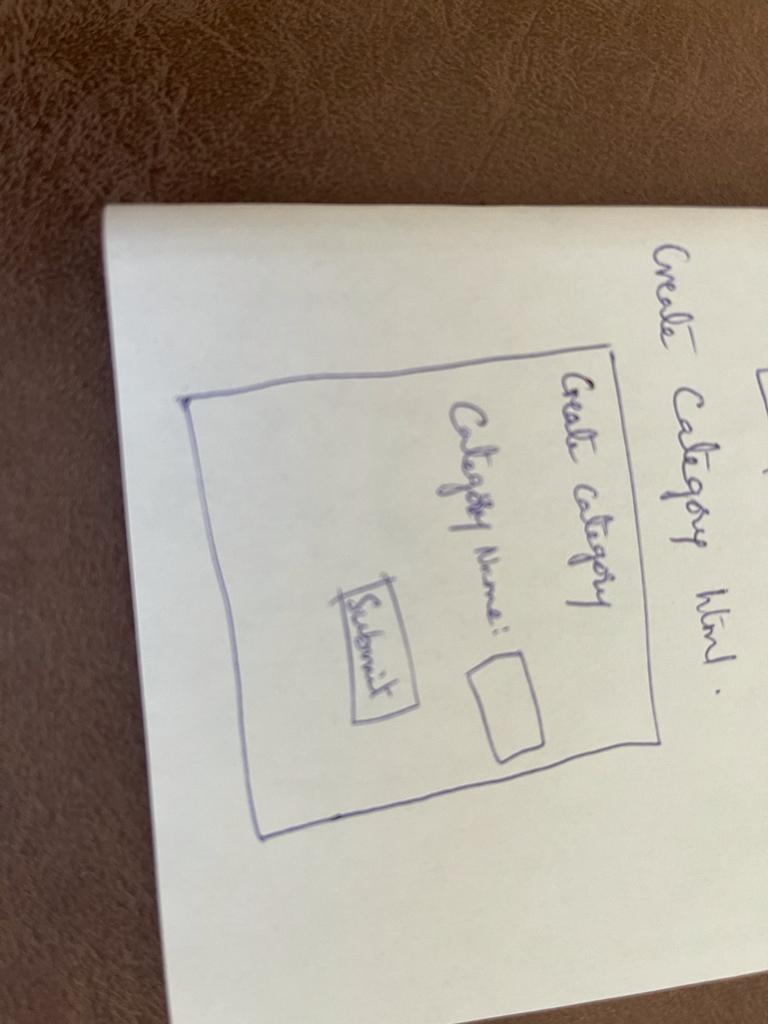 Create Category html.
Create Category
Category Name:
Submit